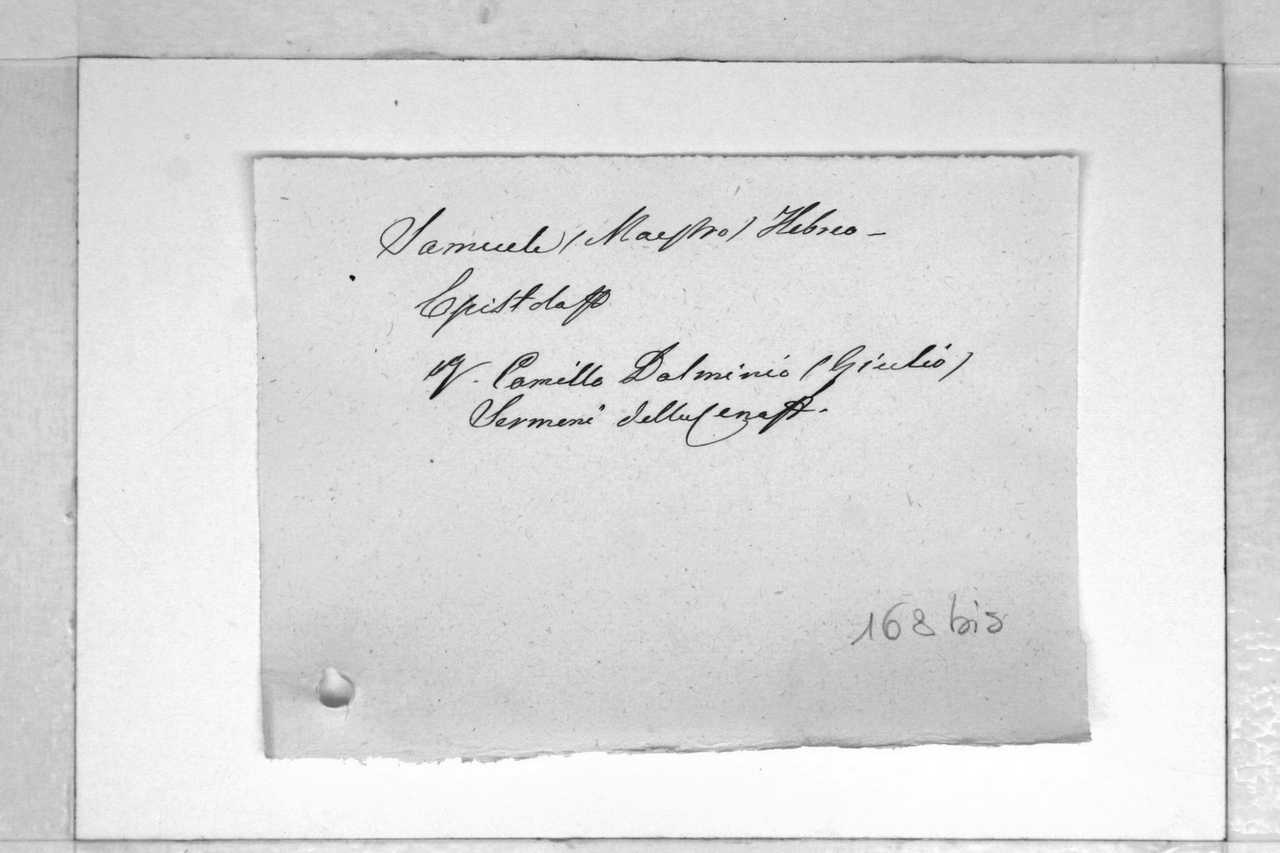 Samuele (Maestro) Hebreo -
Epistola
V. Camillo Dalminio (Giulio)
Sermoni della Cena
168 bis